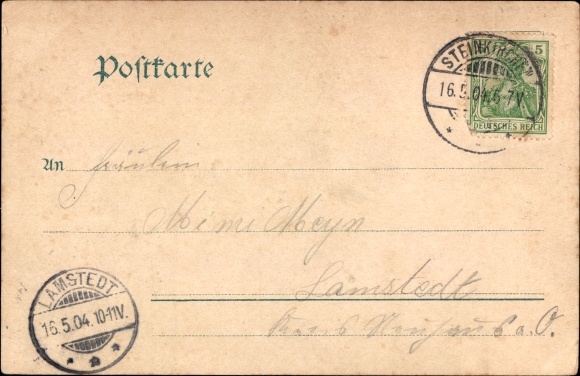 Postkarte
STEINKIRCHEN
16.5.04.6-7N.
5
DEUTSCHES REICH
An Fräulein
Mimi Meyn
Lamstedt
Kreis Neuhaus a. O.
LAMSTEDT
16.5.04.10-11V.